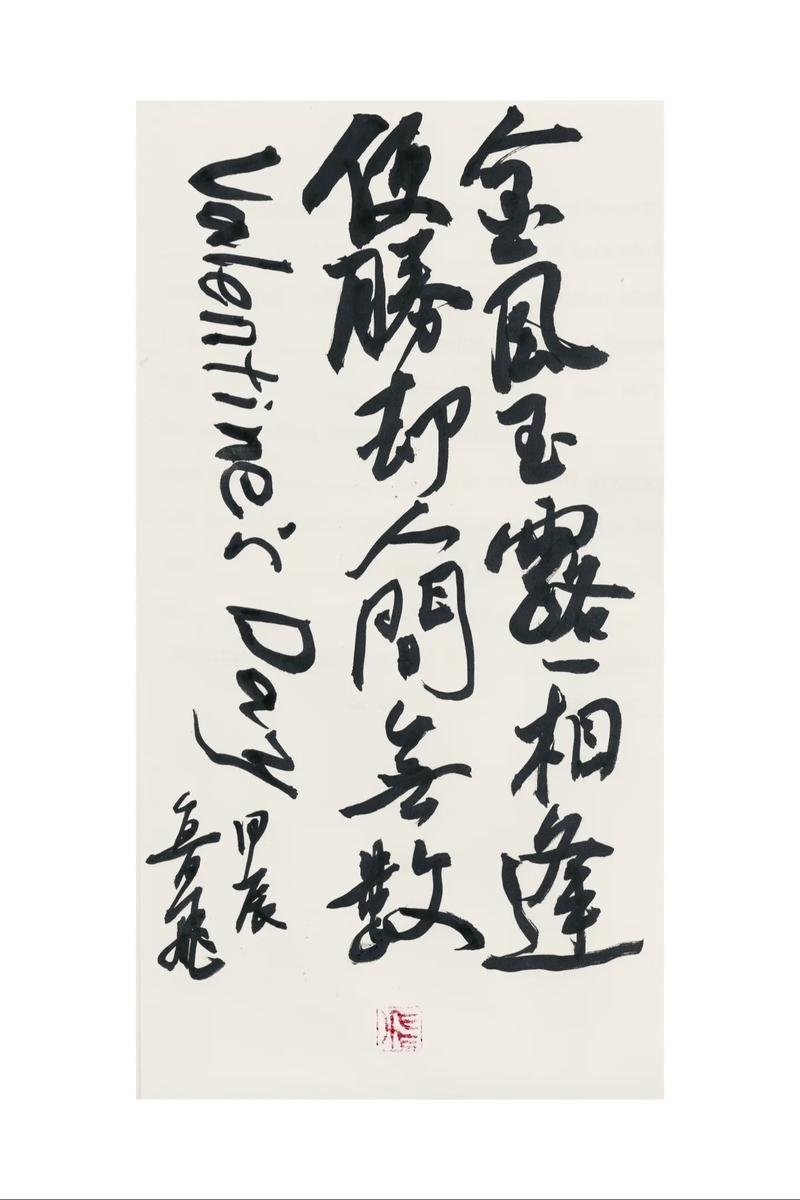 金風玉露一相逢
便勝却人間無數
Valentine's Day
甲辰
魯飛